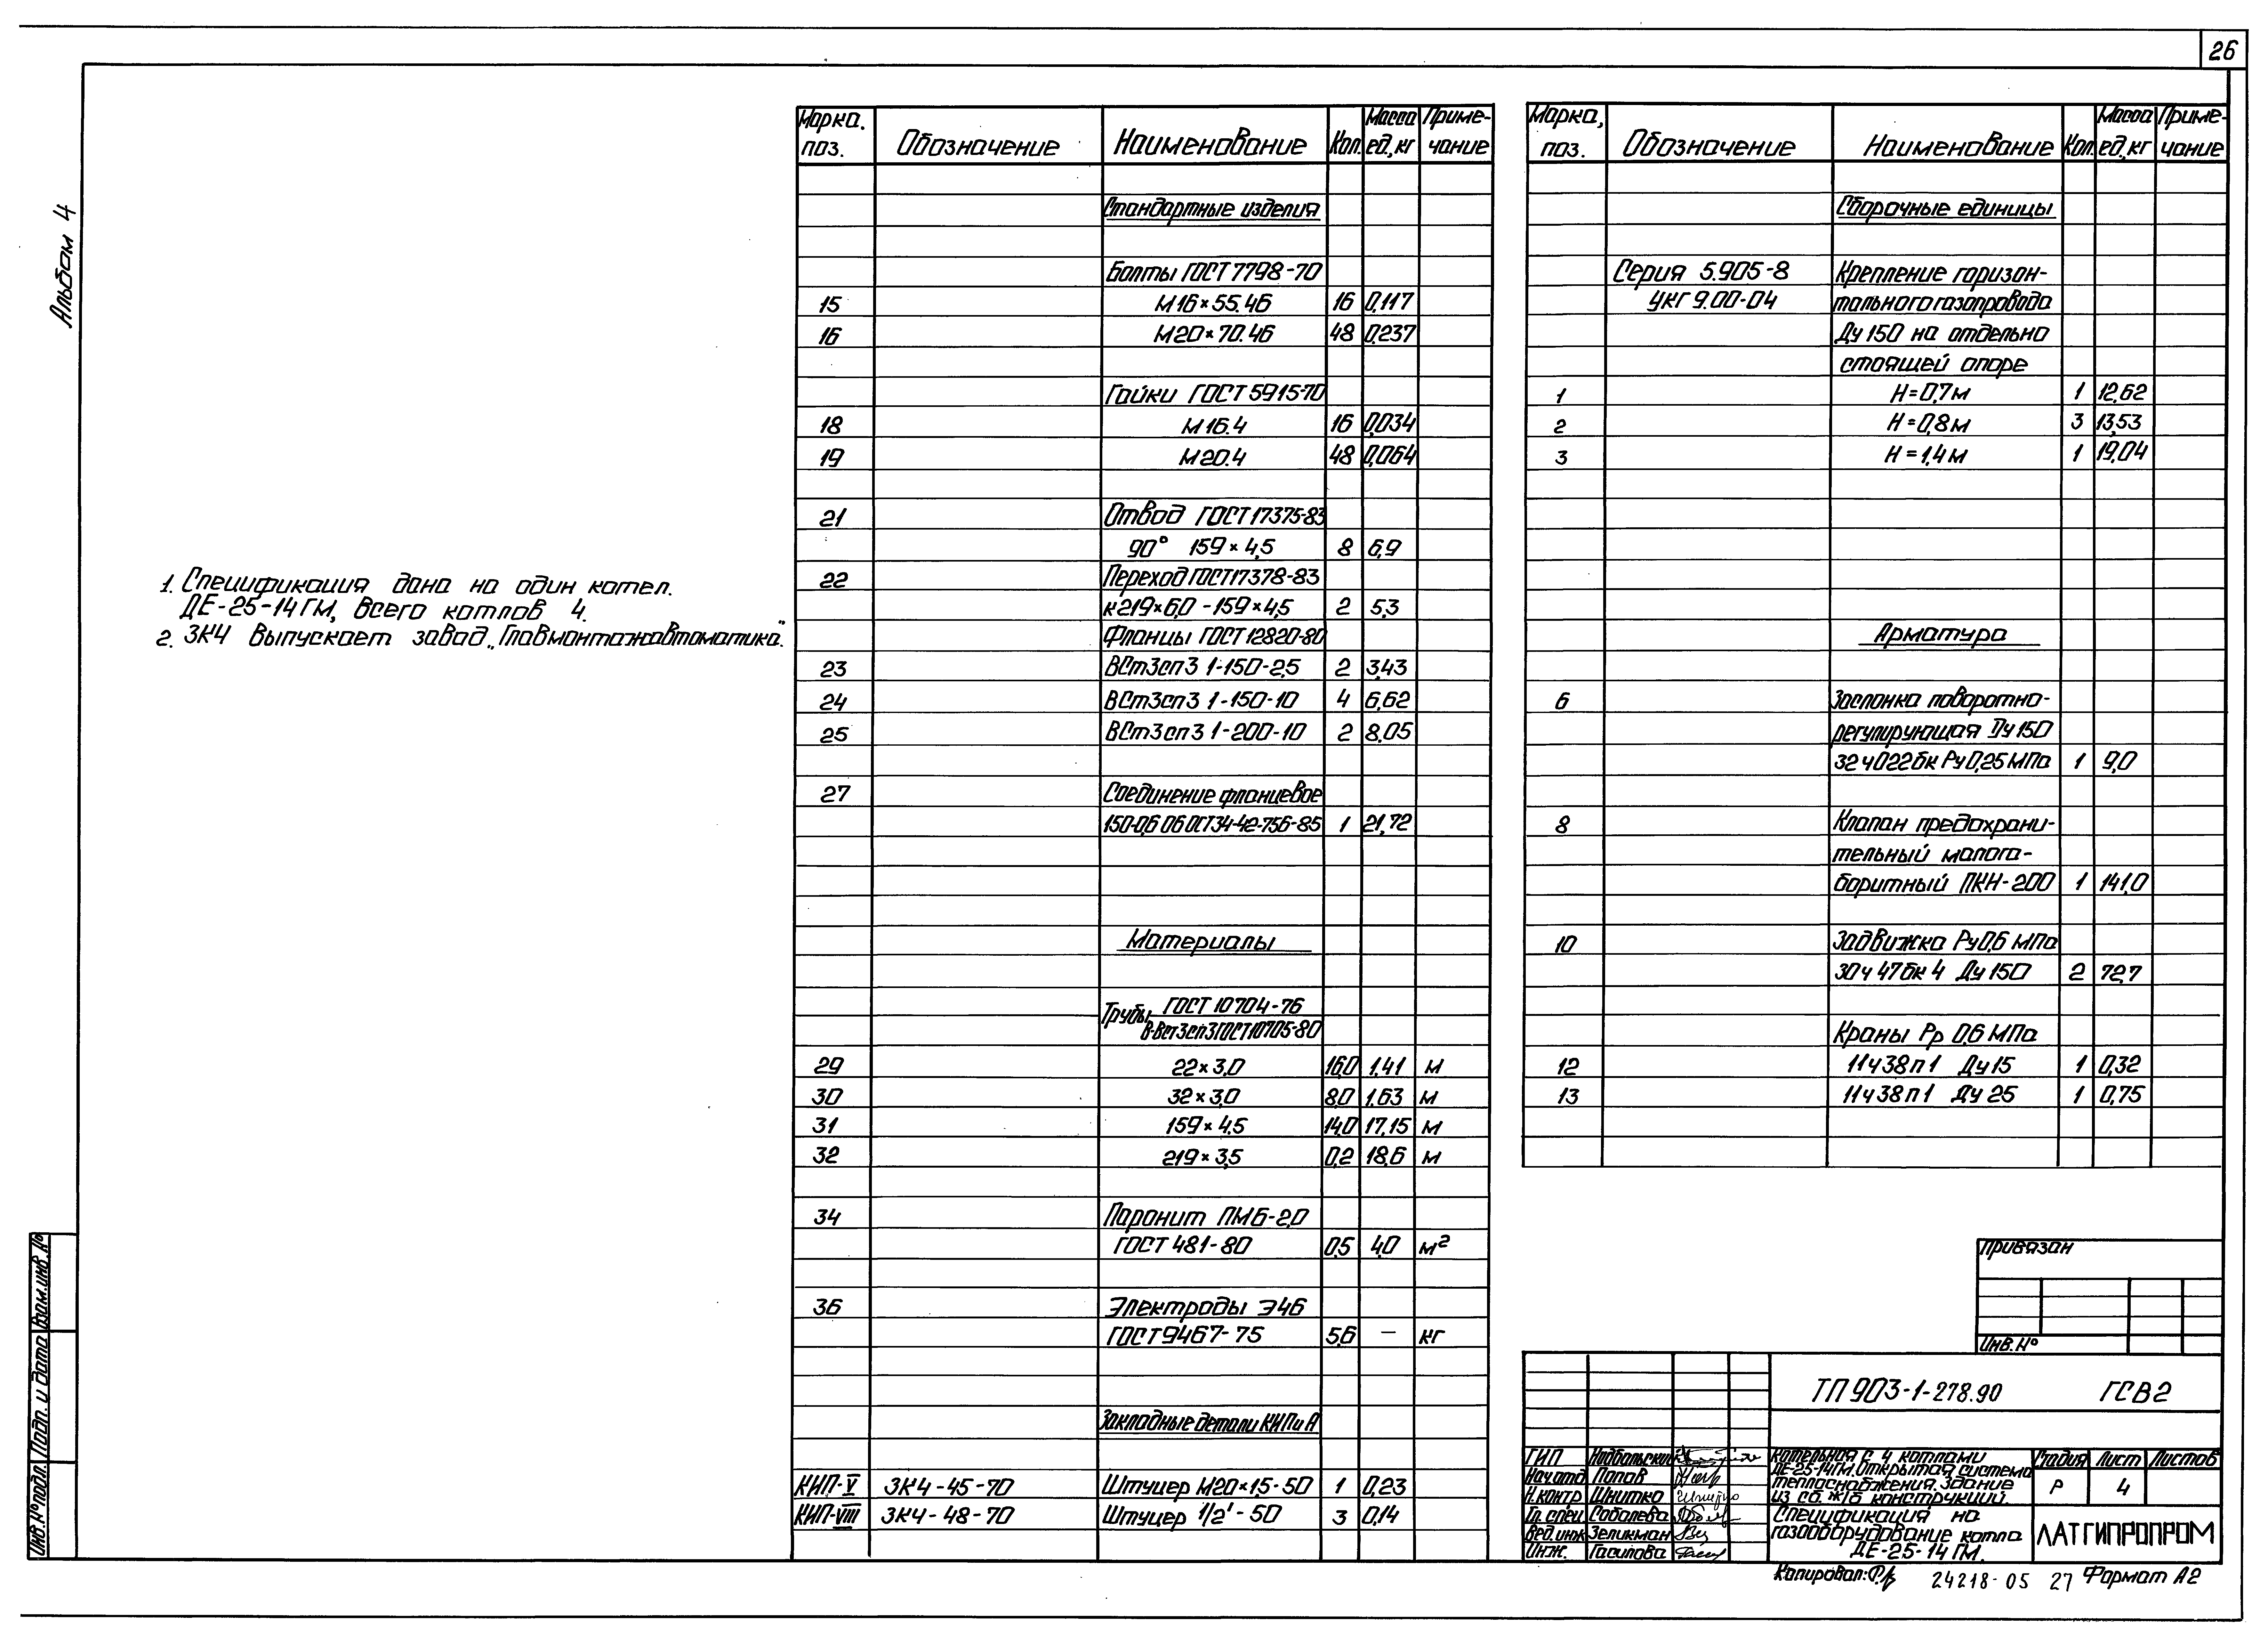 26
Альбом 4
1. Спецификация дана на один котел.
ДЕ-25-14ГМ, всего котлов 4.
2. ЗК4 выпускает завод „Главмонтажавтоматика".
Марка. поз. Обозначение Наименование Кол. Масса ед,кг Приме-чание
Стандартные изделия
Болты ГОСТ 7798-70
15 М16×55.46 16 0,117
16 М20×70.46 48 0,237
Гайки ГОСТ 5915-70
18 М16.4 16 0,034
19 М20.4 48 0,064
21 Отвод ГОСТ 17375-83
90° 159×4,5 8 6,9
22 Переход ГОСТ17378-83
К219×6,0-159×4,5 2 5,3
Фланцы ГОСТ 12820-80
23 ВСт3сп3 1-150-2,5 2 3,43
24 ВСт3сп3 1-150-10 4 6,62
25 ВСт3сп3 1-200-10 2 8,05
27 Соединение фланцевое
150-0,6 06 ОСТ34-42-756-85 1 21,72
Материалы
Трубы ГОСТ 10704-76
В-Вст3сп3ГОСТ10705-80
29 22×3,0 16,0 1,41 м
30 32×3,0 8,0 1,63 м
31 159×4,5 14,0 17,15 м
32 219×3,5 0,2 18,6 м
34 Паронит ПМБ-2,0
ГОСТ 481-80 0,5 4,0 м²
36 Электроды Э46
ГОСТ 9467-75 5,6 — кг
Закладные детали КИПиА
КИП-V ЗК4-45-70 Штуцер М20×1,5-50 1 0,23
КИП-VIII ЗК4-48-70 Штуцер 1/2'-50 3 0,14
Марка, поз. Обозначение Наименование Кол. Масса ед,кг Приме-чание
Сборочные единицы
Серия 5.905-8 Крепление горизон-
УКГ 9.00-04 тального газопровода
Ду 150 на отдельно
стоящей опоре
1 Н=0,7м 1 12,62
2 Н=0,8м 3 13,53
3 Н=1,4м 1 19,04
Арматура
6 Заслонка поворотно-
регулирующая Ду 150
32ч022бк Ру 0,25 МПа 1 9,0
8 Клапан предохрани-
тельный малога-
баритный ПКН-200 1 141,0
10 Задвижка Ру0,6 МПа
30ч 47бк 4 Ду 150 2 72,7
Краны Рр 0,6 МПа
12 11ч38п1 Ду 15 1 0,32
13 11ч38п1 Ду 25 1 0,75
Привязан
Инв.№
ТП 903-1-278.90 ГСВ2
ГИП Надбольский
Нач.отд Попов
Н.контр Шнитко
Гл.спец Соболева
Вед.инж Зеликман
Инж. Гасилова
Котельная с 4 котлами
ДЕ-25-14ГМ. Открытая система
теплоснабжения. Здание
из сб. ж/б конструкций.
Стадия Лист Листов
Р 4
Спецификация на
газооборудование котла
ДЕ-25-14 ГМ.
ЛАТГИПРОПРОМ
Копировал: 24218-05 27 Формат А2
Инв.№подл. Подп. и дата Взам.инв.№